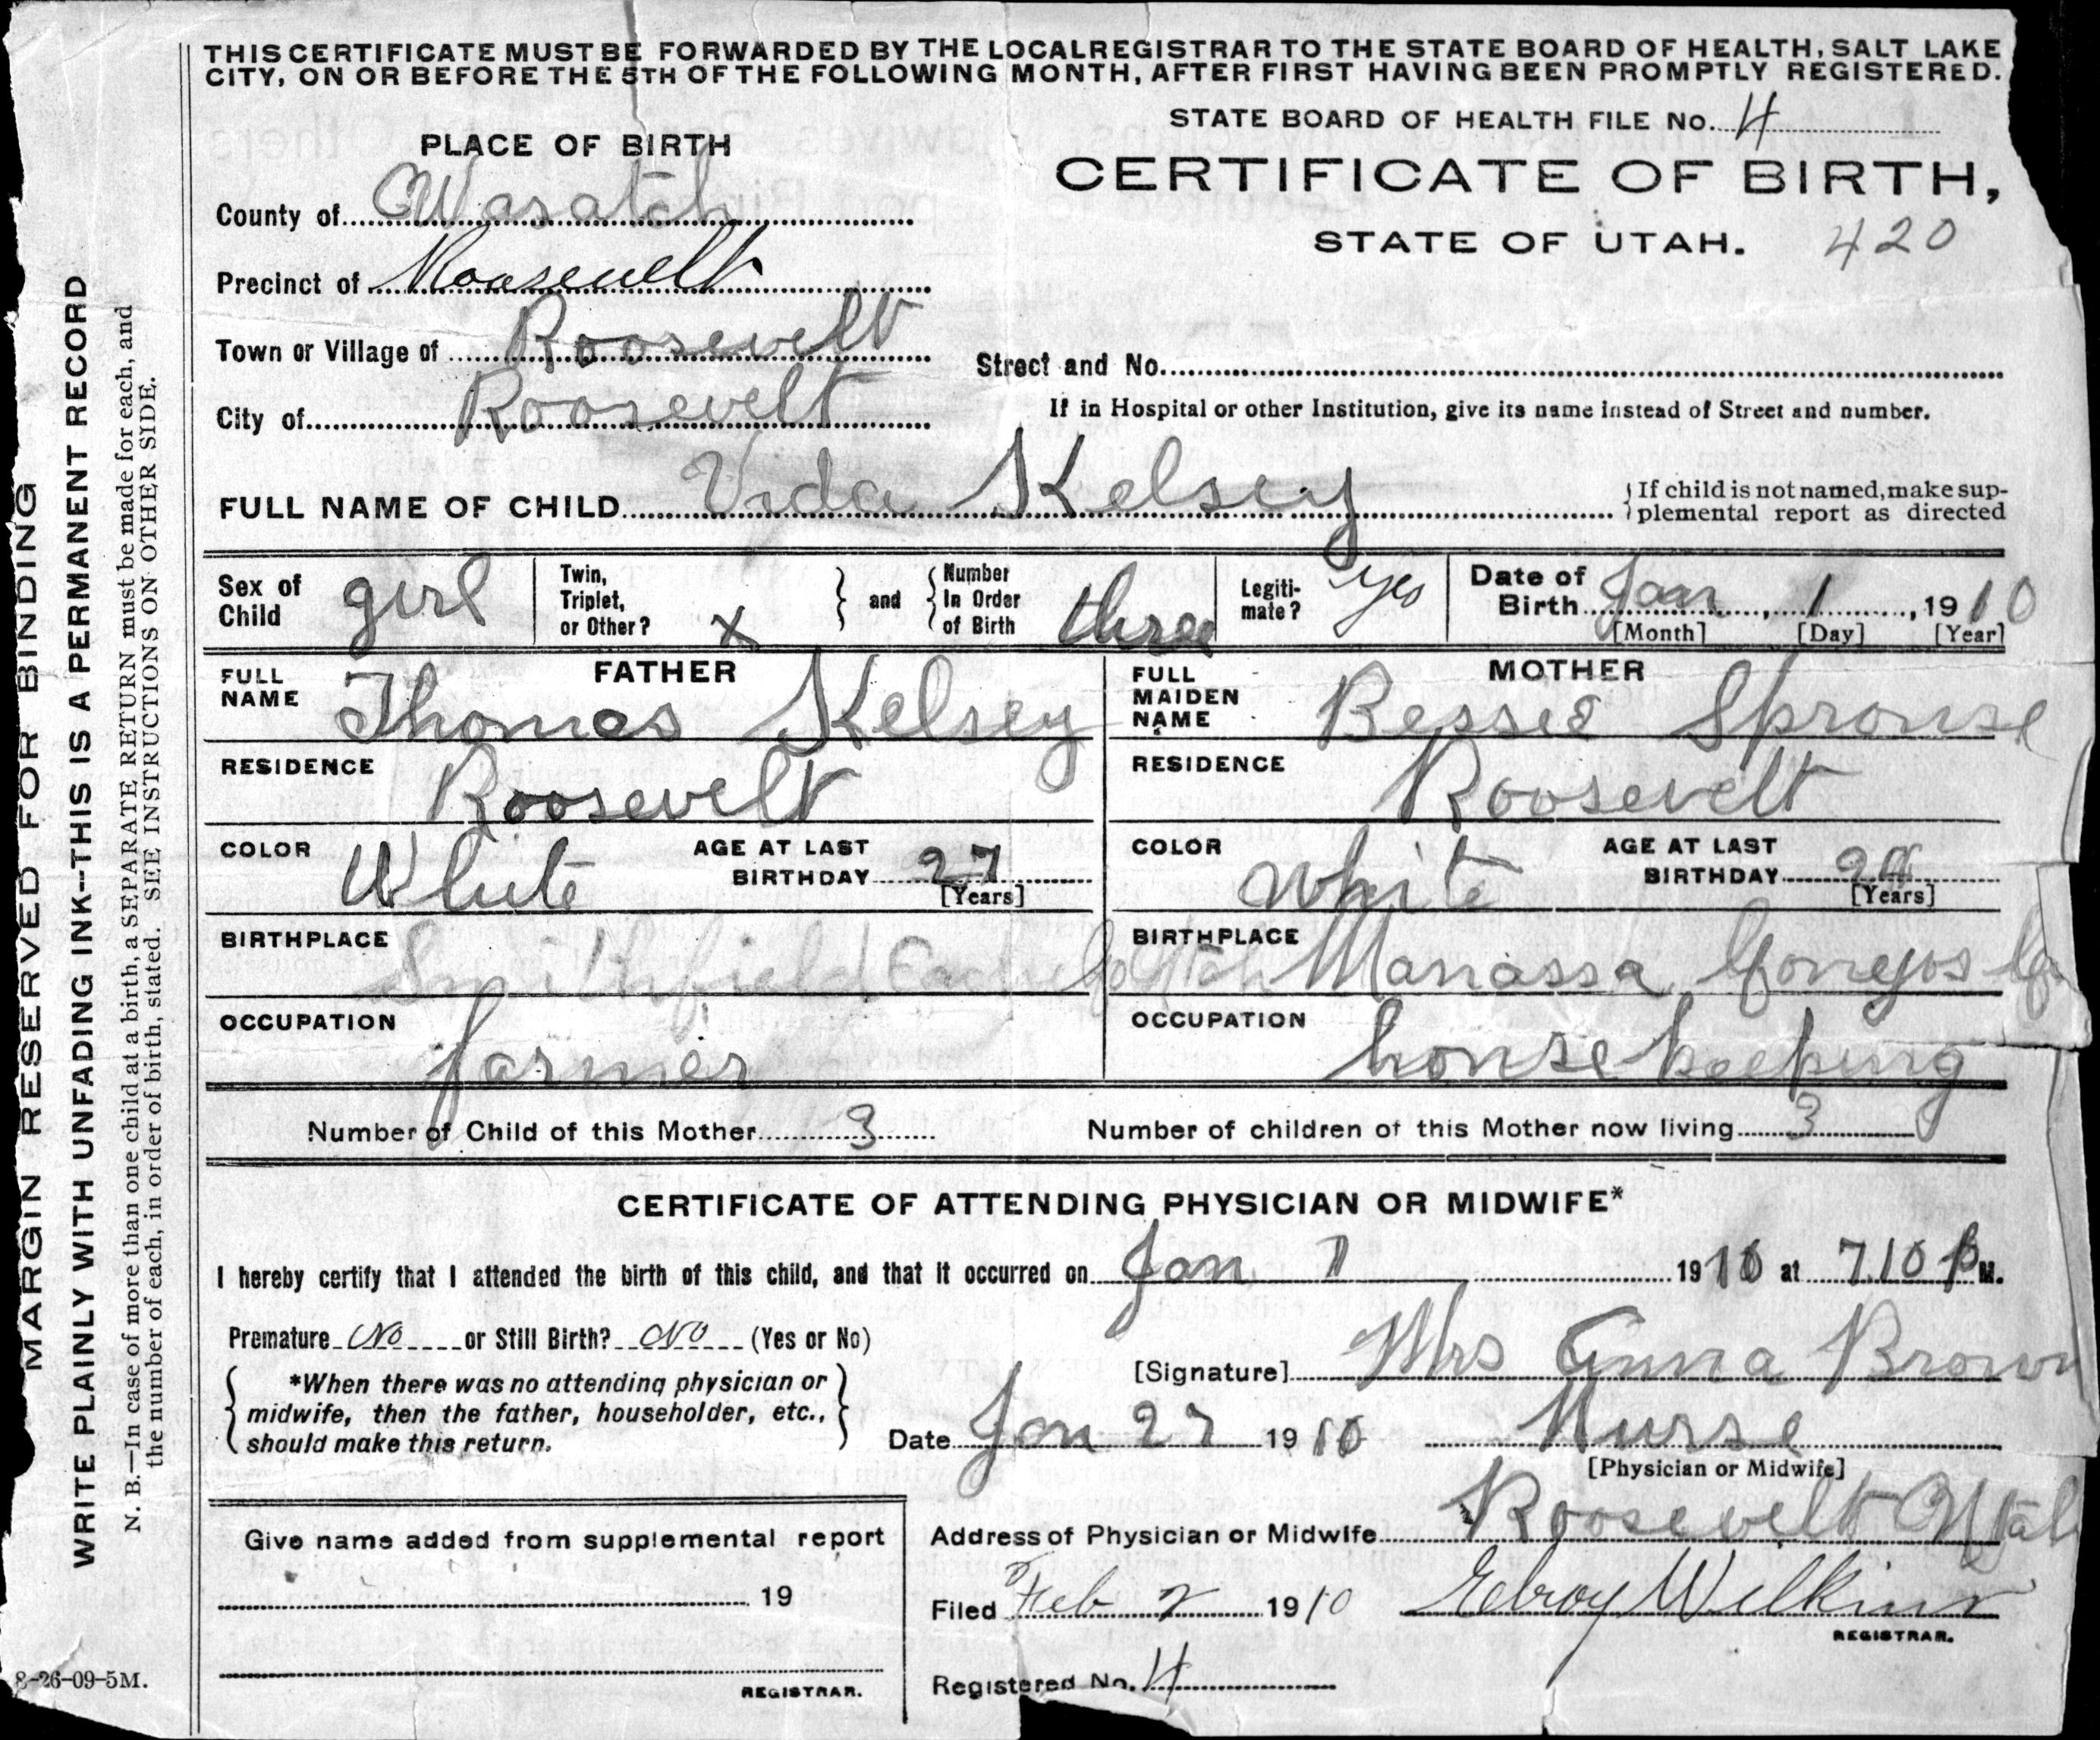 THIS CERTIFICATE MUST BE FORWARDED BY THE LOCAL REGISTRAR TO THE STATE BOARD OF HEALTH, SALT LAKE
CITY, ON OR BEFORE THE 5TH OF THE FOLLOWING MONTH, AFTER FIRST HAVING BEEN PROMPTLY REGISTERED.
STATE BOARD OF HEALTH FILE No. 4
PLACE OF BIRTH
CERTIFICATE OF BIRTH,
County of Wasatch
STATE OF UTAH. 420
Precinct of Roosevelt
Town or Village of Roosevelt
Street and No.
City of Roosevelt
If in Hospital or other Institution, give its name instead of Street and number.
FULL NAME OF CHILD Vida Kelsey
If child is not named, make sup-
plemental report as directed
Sex of Child girl
Twin, Triplet, or Other? x and Number In Order of Birth three
Legiti-mate? yes
Date of Birth Jan, 1, 1910
[Month] [Day] [Year]
FATHER
FULL NAME Thomas Kelsey
RESIDENCE Roosevelt
COLOR White AGE AT LAST BIRTHDAY 27
[Years]
BIRTHPLACE Smithfield Utah
OCCUPATION farmer
MOTHER
FULL MAIDEN NAME Bessie Sprouse
RESIDENCE Roosevelt
COLOR white AGE AT LAST BIRTHDAY
[Years]
BIRTHPLACE Manassa
OCCUPATION house keeping
Number of Child of this Mother 3
Number of children of this Mother now living 3
CERTIFICATE OF ATTENDING PHYSICIAN OR MIDWIFE*
I hereby certify that I attended the birth of this child, and that it occurred on Jan 1 1910 at 7.10 p M.
Premature No or Still Birth? No (Yes or No)
[Signature] Mrs Anna Brown
*When there was no attending physician or
midwife, then the father, householder, etc.,
should make this return.
Date Jan 27 1910 Nurse
[Physician or Midwife]
Address of Physician or Midwife Roosevelt Utah
Give name added from supplemental report
19
REGISTRAR.
Filed Feb 2 1910 Wilkins
REGISTRAR.
Registered No. 4
MARGIN RESERVED FOR BINDING
WRITE PLAINLY WITH UNFADING INK--THIS IS A PERMANENT RECORD
N. B.—In case of more than one child at a birth, a SEPARATE RETURN must be made for each, and
the number of each, in order of birth, stated. SEE INSTRUCTIONS ON OTHER SIDE.
8-26-09-5M.